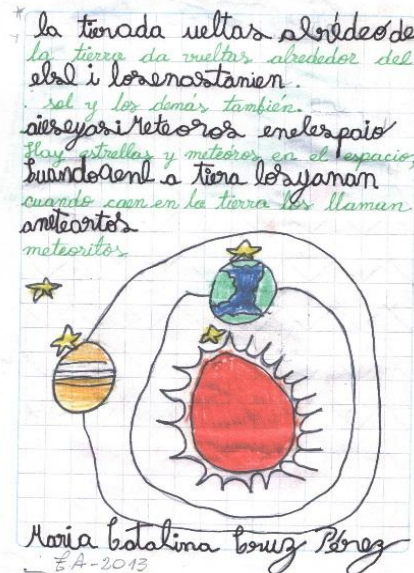 la tierada ueltas alrededeode
la tierra da vueltas alrededor del
elsol i losenastanien.
sol y los demás también.
aieseyasi Meteoros enelespaio
Hay estrellas y meteóros en el espacio,
Cuandoaenl a tiera losyanan
cuando caen en la tierra los llaman
aneteartos
meteoritos
Maria Catalina Cruz Pérez
EA-2013